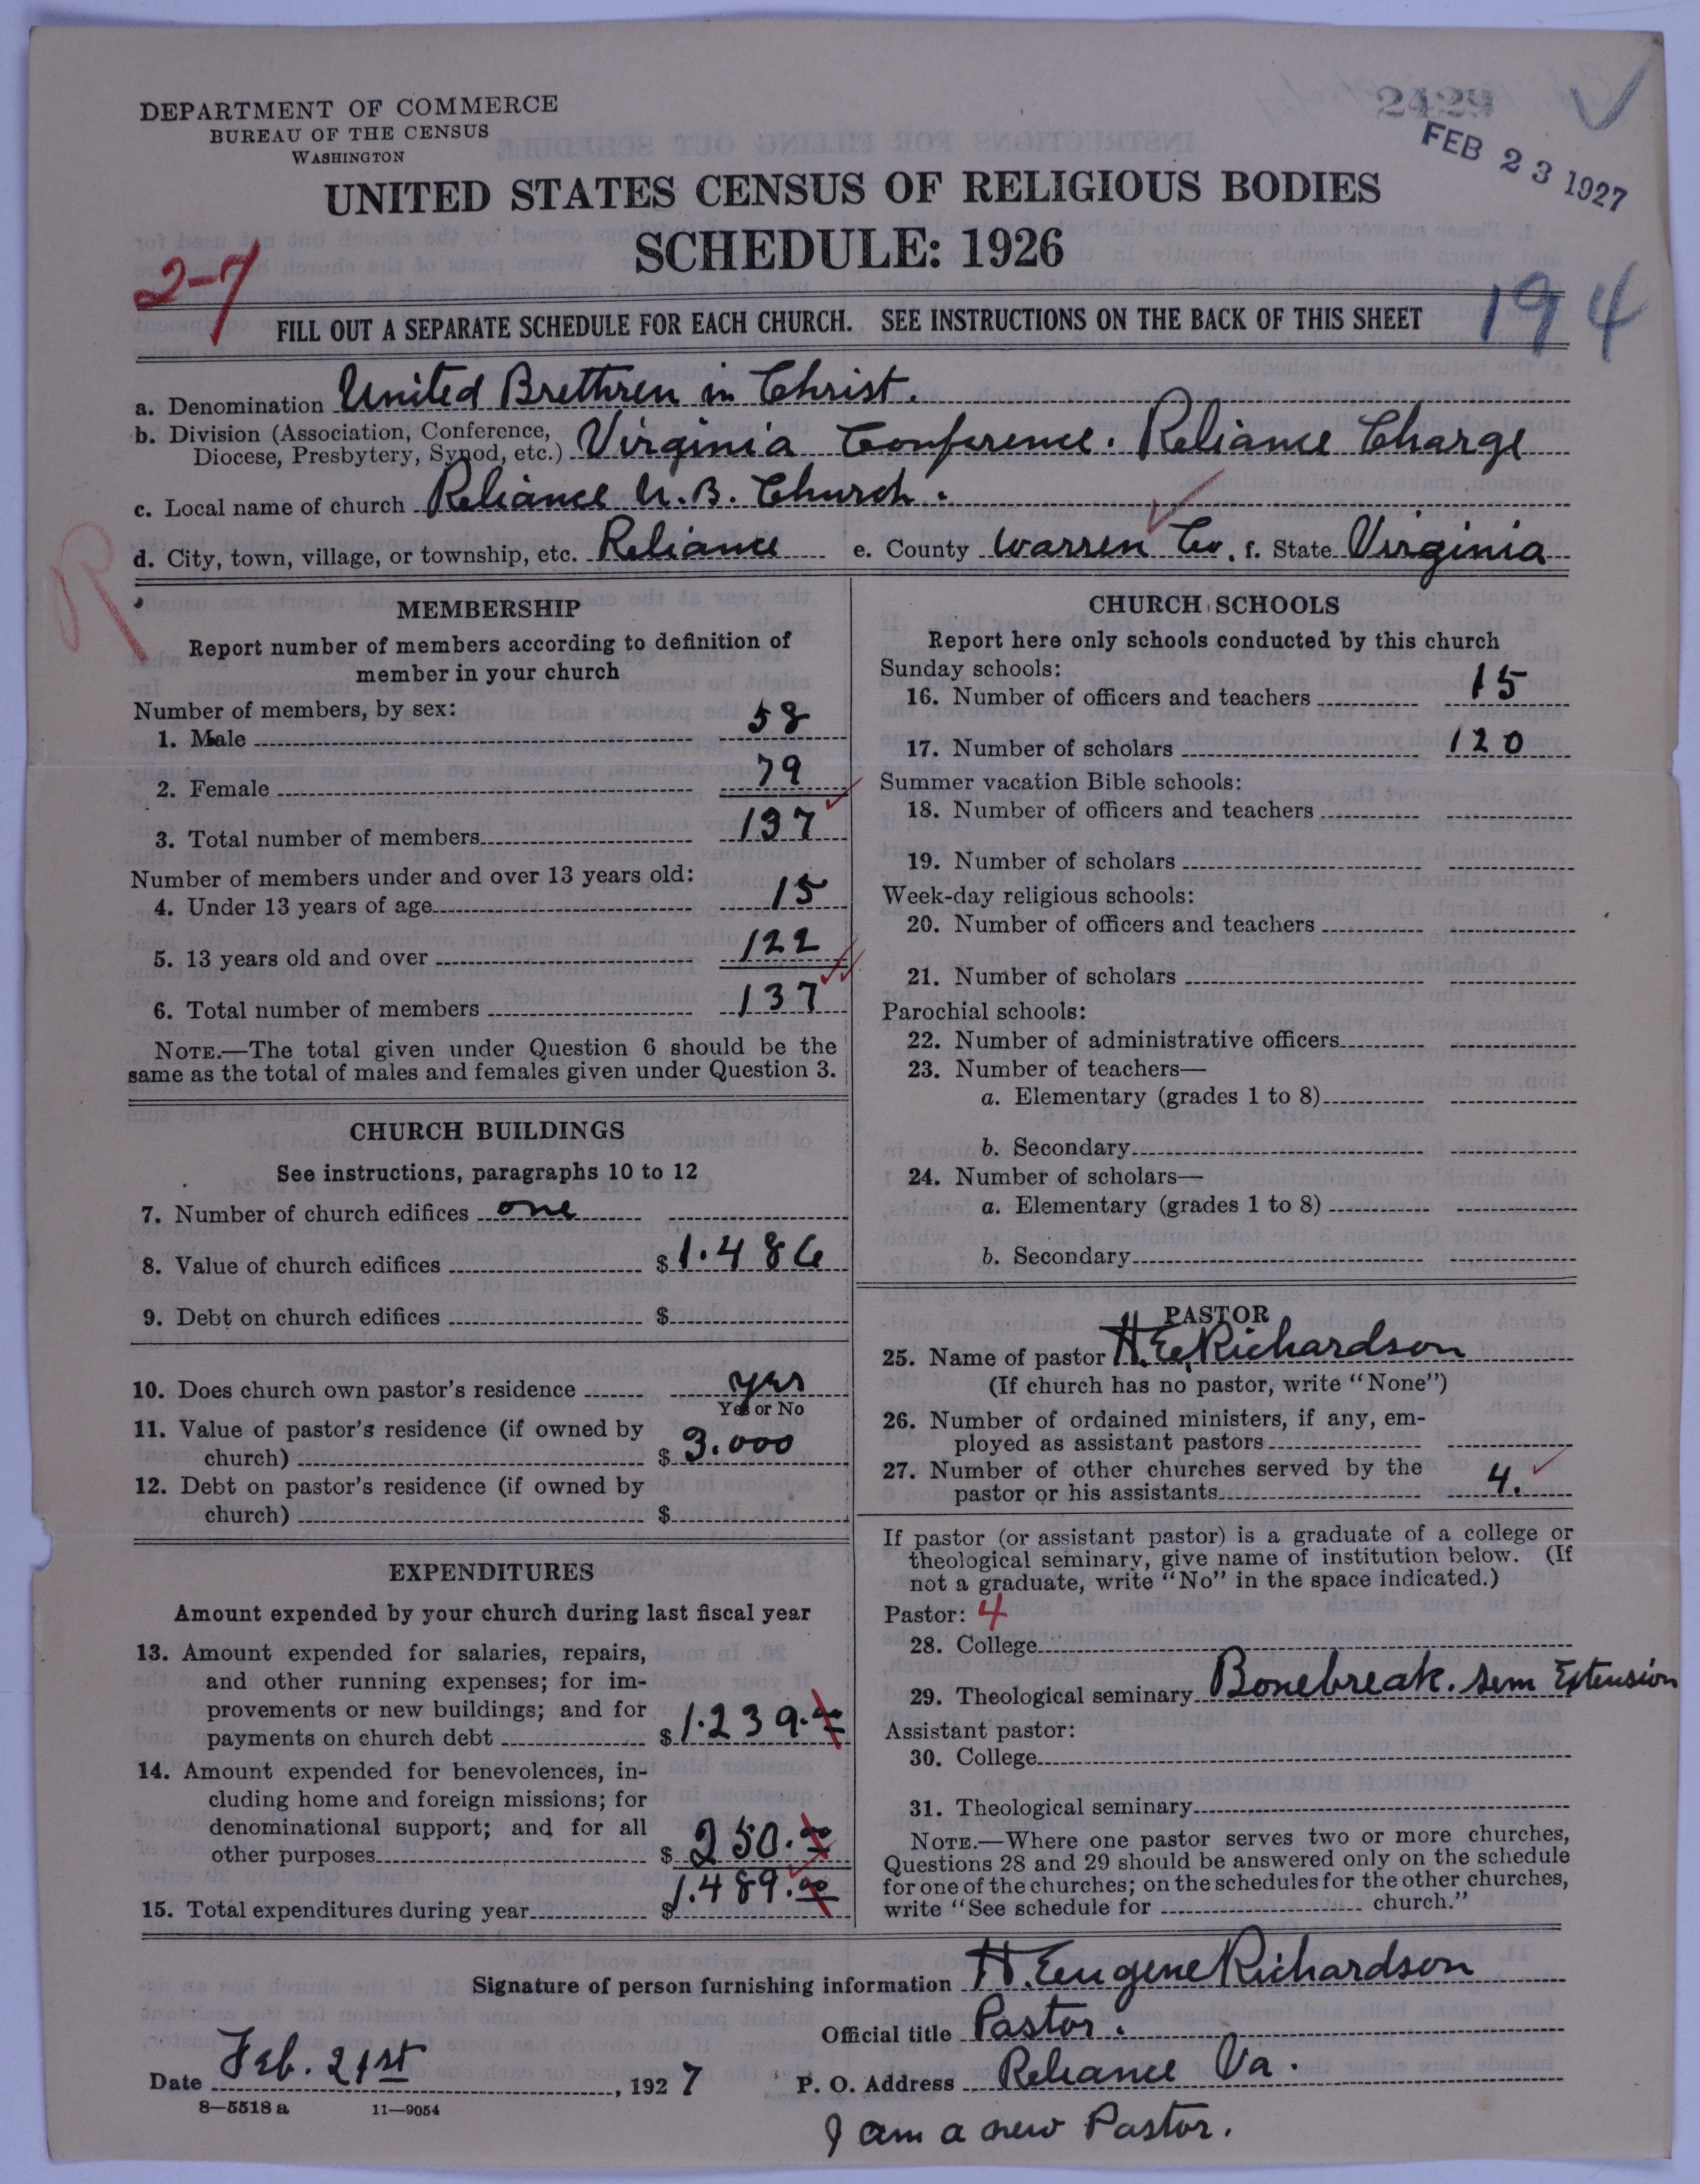 DEPARTMENT OF COMMERCE
BUREAU OF THE CENSUS
WASHINGTON
2429
FEB 23 1927
UNITED STATES CENSUS OF RELIGIOUS BODIES
SCHEDULE: 1926
2-7
194
FILL OUT A SEPARATE SCHEDULE FOR EACH CHURCH. SEE INSTRUCTIONS ON THE BACK OF THIS SHEET
a. Denomination United Brethren in Christ.
b. Division (Association, Conference,
Diocese, Presbytery, Synod, etc.) Virginia Conference. Reliance Charge
c. Local name of church Reliance U.B. Church.
d. City, town, village, or township, etc. Reliance e. County Warren Co. f. State Virginia
R
MEMBERSHIP
Report number of members according to definition of
member in your church
Number of members, by sex:
1. Male 58
2. Female 79
3. Total number of members 137
Number of members under and over 13 years old:
4. Under 13 years of age 15
5. 13 years old and over 122
6. Total number of members 137
NOTE.—The total given under Question 6 should be the
same as the total of males and females given under Question 3.
CHURCH BUILDINGS
See instructions, paragraphs 10 to 12
7. Number of church edifices one
8. Value of church edifices $1.486
9. Debt on church edifices $
10. Does church own pastor's residence yes
Yes or No
11. Value of pastor's residence (if owned by
church) $ 3.000
12. Debt on pastor's residence (if owned by
church) $
EXPENDITURES
Amount expended by your church during last fiscal year
13. Amount expended for salaries, repairs,
and other running expenses; for im-
provements or new buildings; and for
payments on church debt $1.239.00
14. Amount expended for benevolences, in-
cluding home and foreign missions; for
denominational support; and for all
other purposes $ 250.00
15. Total expenditures during year $1.489.00
CHURCH SCHOOLS
Report here only schools conducted by this church
Sunday schools:
16. Number of officers and teachers 15
17. Number of scholars 120
Summer vacation Bible schools:
18. Number of officers and teachers
19. Number of scholars
Week-day religious schools:
20. Number of officers and teachers
21. Number of scholars
Parochial schools:
22. Number of administrative officers
23. Number of teachers—
a. Elementary (grades 1 to 8)
b. Secondary
24. Number of scholars—
a. Elementary (grades 1 to 8)
b. Secondary
PASTOR
25. Name of pastor H. E. Richardson
(If church has no pastor, write "None")
26. Number of ordained ministers, if any, em-
ployed as assistant pastors
27. Number of other churches served by the
pastor or his assistants 4.
If pastor (or assistant pastor) is a graduate of a college or
theological seminary, give name of institution below. (If
not a graduate, write "No" in the space indicated.)
Pastor: 4
28. College
29. Theological seminary Bonebreak. Sem Extension
Assistant pastor:
30. College
31. Theological seminary
NOTE.—Where one pastor serves two or more churches,
Questions 28 and 29 should be answered only on the schedule
for one of the churches; on the schedules for the other churches,
write "See schedule for church."
Signature of person furnishing information H. Eugene Richardson
Official title Pastor.
Date Feb. 21st, 1927 P. O. Address Reliance Va.
8—5518 a 11—9054
I am a new Pastor.